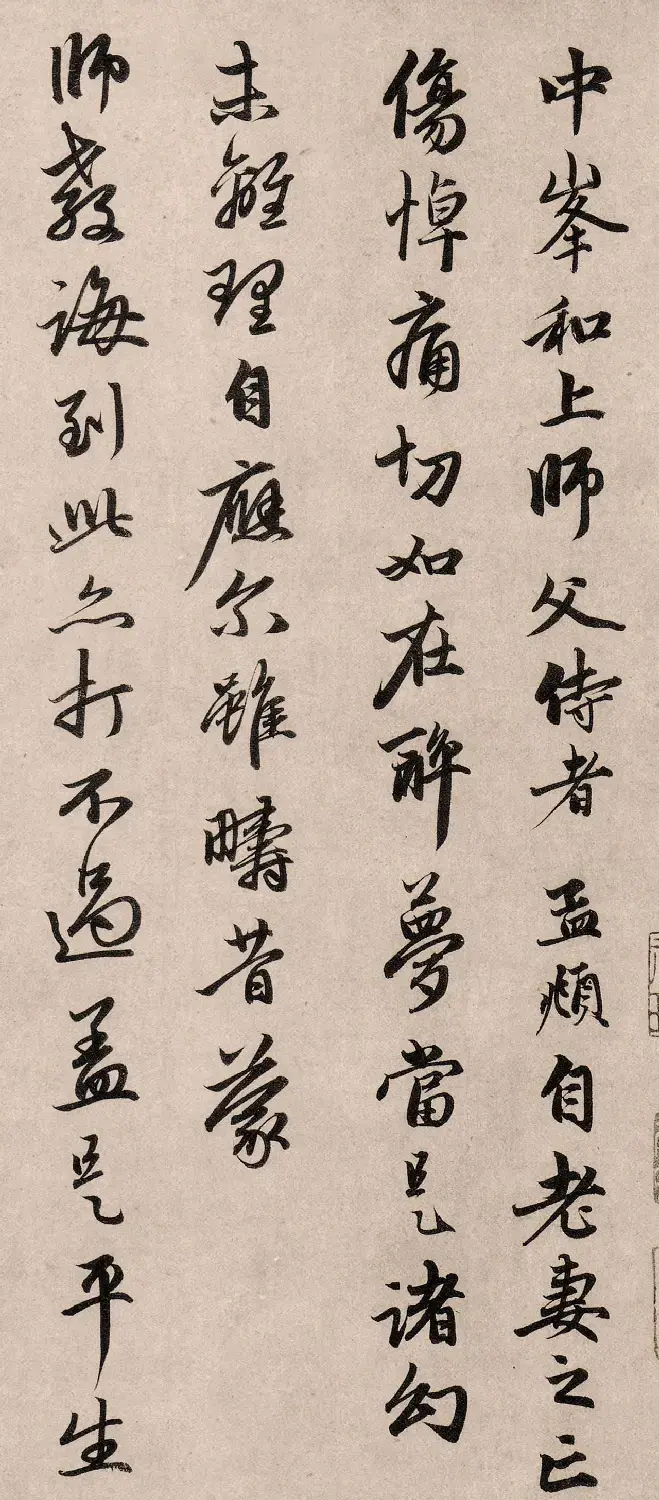 中峯和上師父侍者孟頫自老妻之亡
傷悼痛切如在醉夢當是諸幻
未離理自應尒雖疇昔蒙
師教誨到此亦打不過盖是平生